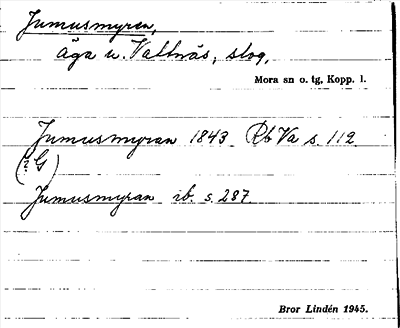 Jumusmyren,
äga u. Vattnäs, skog,
Mora sn o. tg, Kopp. l.
Jumusmyran 1843 Rb Va s. 112
(? G)
Jumusmyran ib. s. 287
Bror Lindén 1945.